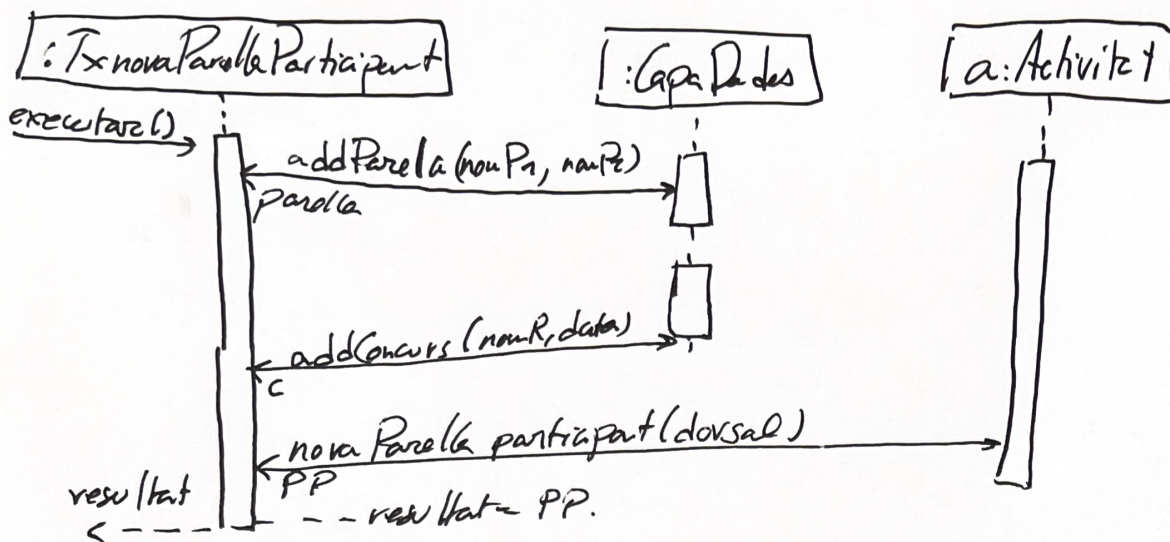 :TxnovaParellaParticipant
:CapaDades
a:Activitat
executar()
addParella(nomP1, nomP2)
parella
addConcurs(nomR, data)
c
nova Parella participant(dorsal)
PP
resultat
resultat = PP.